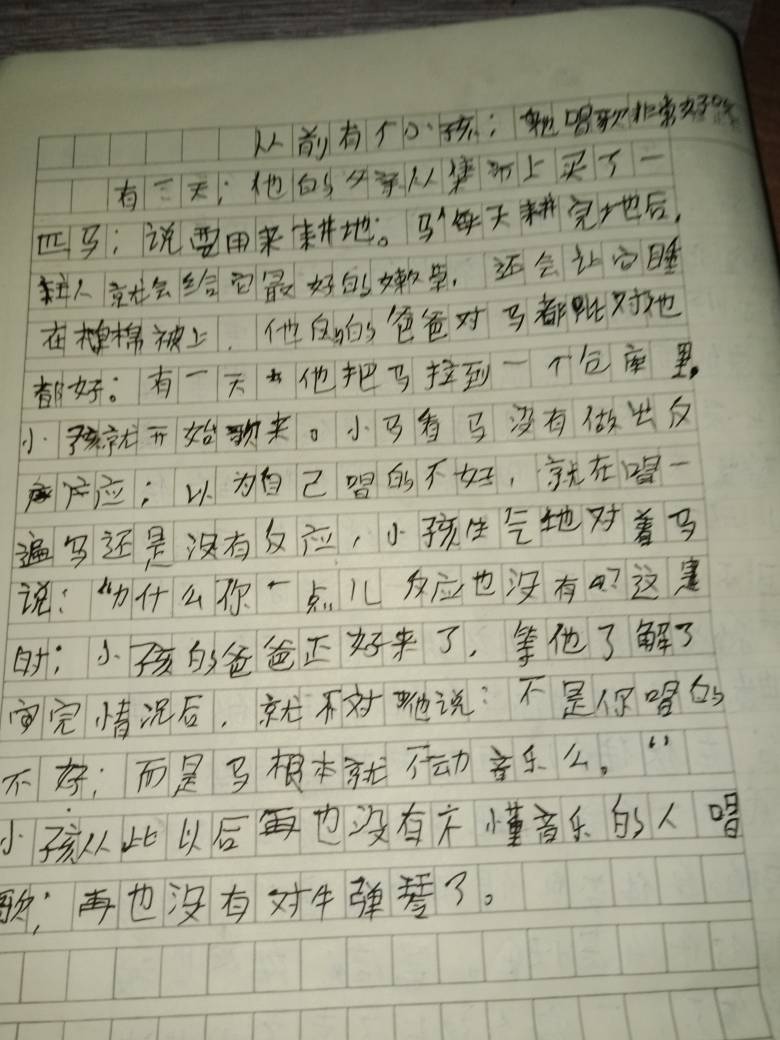 从前有个小孩；他唱歌非常好听
有一天；他的父亲从集市上买了一
匹马；说要用来耕地。马每天耕完地后，
主人就会给它最好的嫩草，还会让它睡
在棉被上，他的爸爸对马都比对他
都好；有一天他把马拉到一个仓库里，
小孩就开始歌来。小马看马没有做出反
应；以为自己唱的不好，就在唱一
遍马还是没有反应，小孩生气地对着马
说：“为什么你一点儿反应也没有？这
时；小孩的爸爸正好来了，等他了解了
完情况后，就对他说：不是你唱的
不好；而是马根本就不动音乐么。”
小孩从此以后再也没有不懂音乐的人唱
歌；再也没有对牛弹琴了。